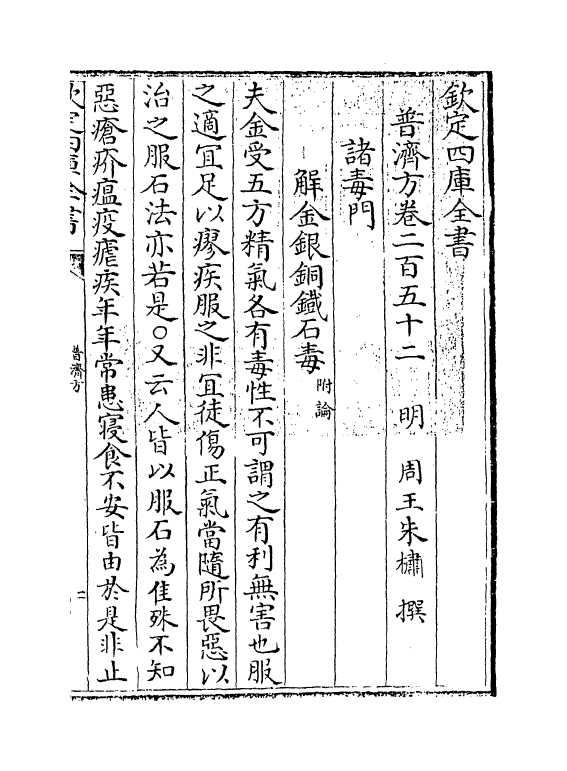 欽定四庫全書
普濟方卷二百五十二　明　周王朱橚　撰
諸毒門
解金銀銅鐵石毒附論
夫金受五方精氣各有毒性不可謂之有利無害也服
之適宜足以瘳疾服之非宜徒傷正氣當隨所畏惡以
治之服石法亦若是○又云人皆以服石為佳殊不知
惡瘡疥瘟疫瘧疾年年常患寢食不安皆由於是非止
欽定四庫全書
普濟方